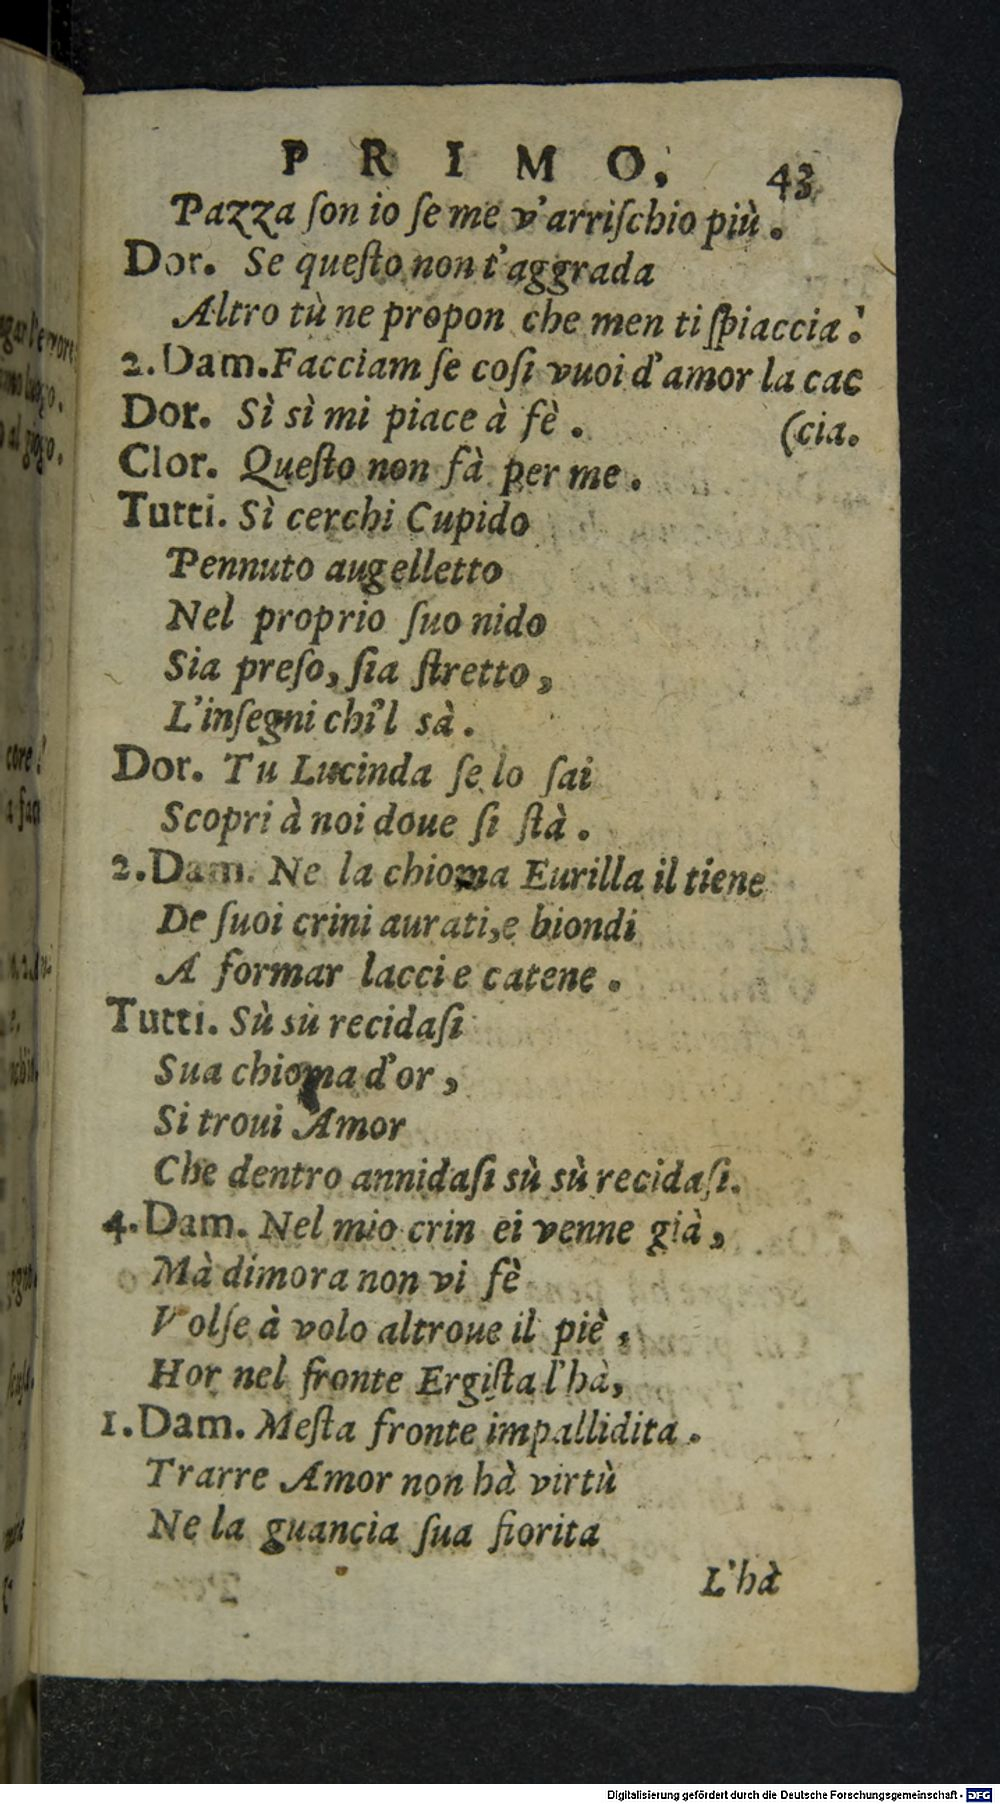 PRIMO, 43
Pazza ſon io ſe me v'arriſchio più.
Dor. Se queſto non t'aggrada
Altro tù ne propon che men ti ſpiaccia!
2. Dam. Facciam ſe coſi vuoi d'amor la cac
Dor. Sì sì mi piace à fè. (cia.
Clor. Queſto non fà per me.
Tutti. Sì cerchi Cupido
Pennuto augelletto
Nel proprio ſuo nido
Sia preſo, ſia ſtretto,
L'inſegni chi'l sà.
Dor. Tu Lucinda ſe lo ſai
Scopri à noi doue ſi ſtà.
2. Dam. Ne la chioma Eurilla il tiene
De ſuoi crini aurati, e biondi
A formar lacci e catene.
Tutti. Sù sù recidaſi
Sua chioma d'or,
Si troui Amor
Che dentro annidaſi sù sù recidaſi.
4. Dam. Nel mio crin ei venne già,
Mà dimora non vi fè
Volſe à volo altroue il piè,
Hor nel fronte Ergiſta l'hà,
1. Dam. Meſta fronte impallidita.
Trarre Amor non hà virtù
Ne la guancia ſua fiorita
L'hà
Digitalisierung gefördert durch die Deutsche Forschungsgemeinschaft - DFG